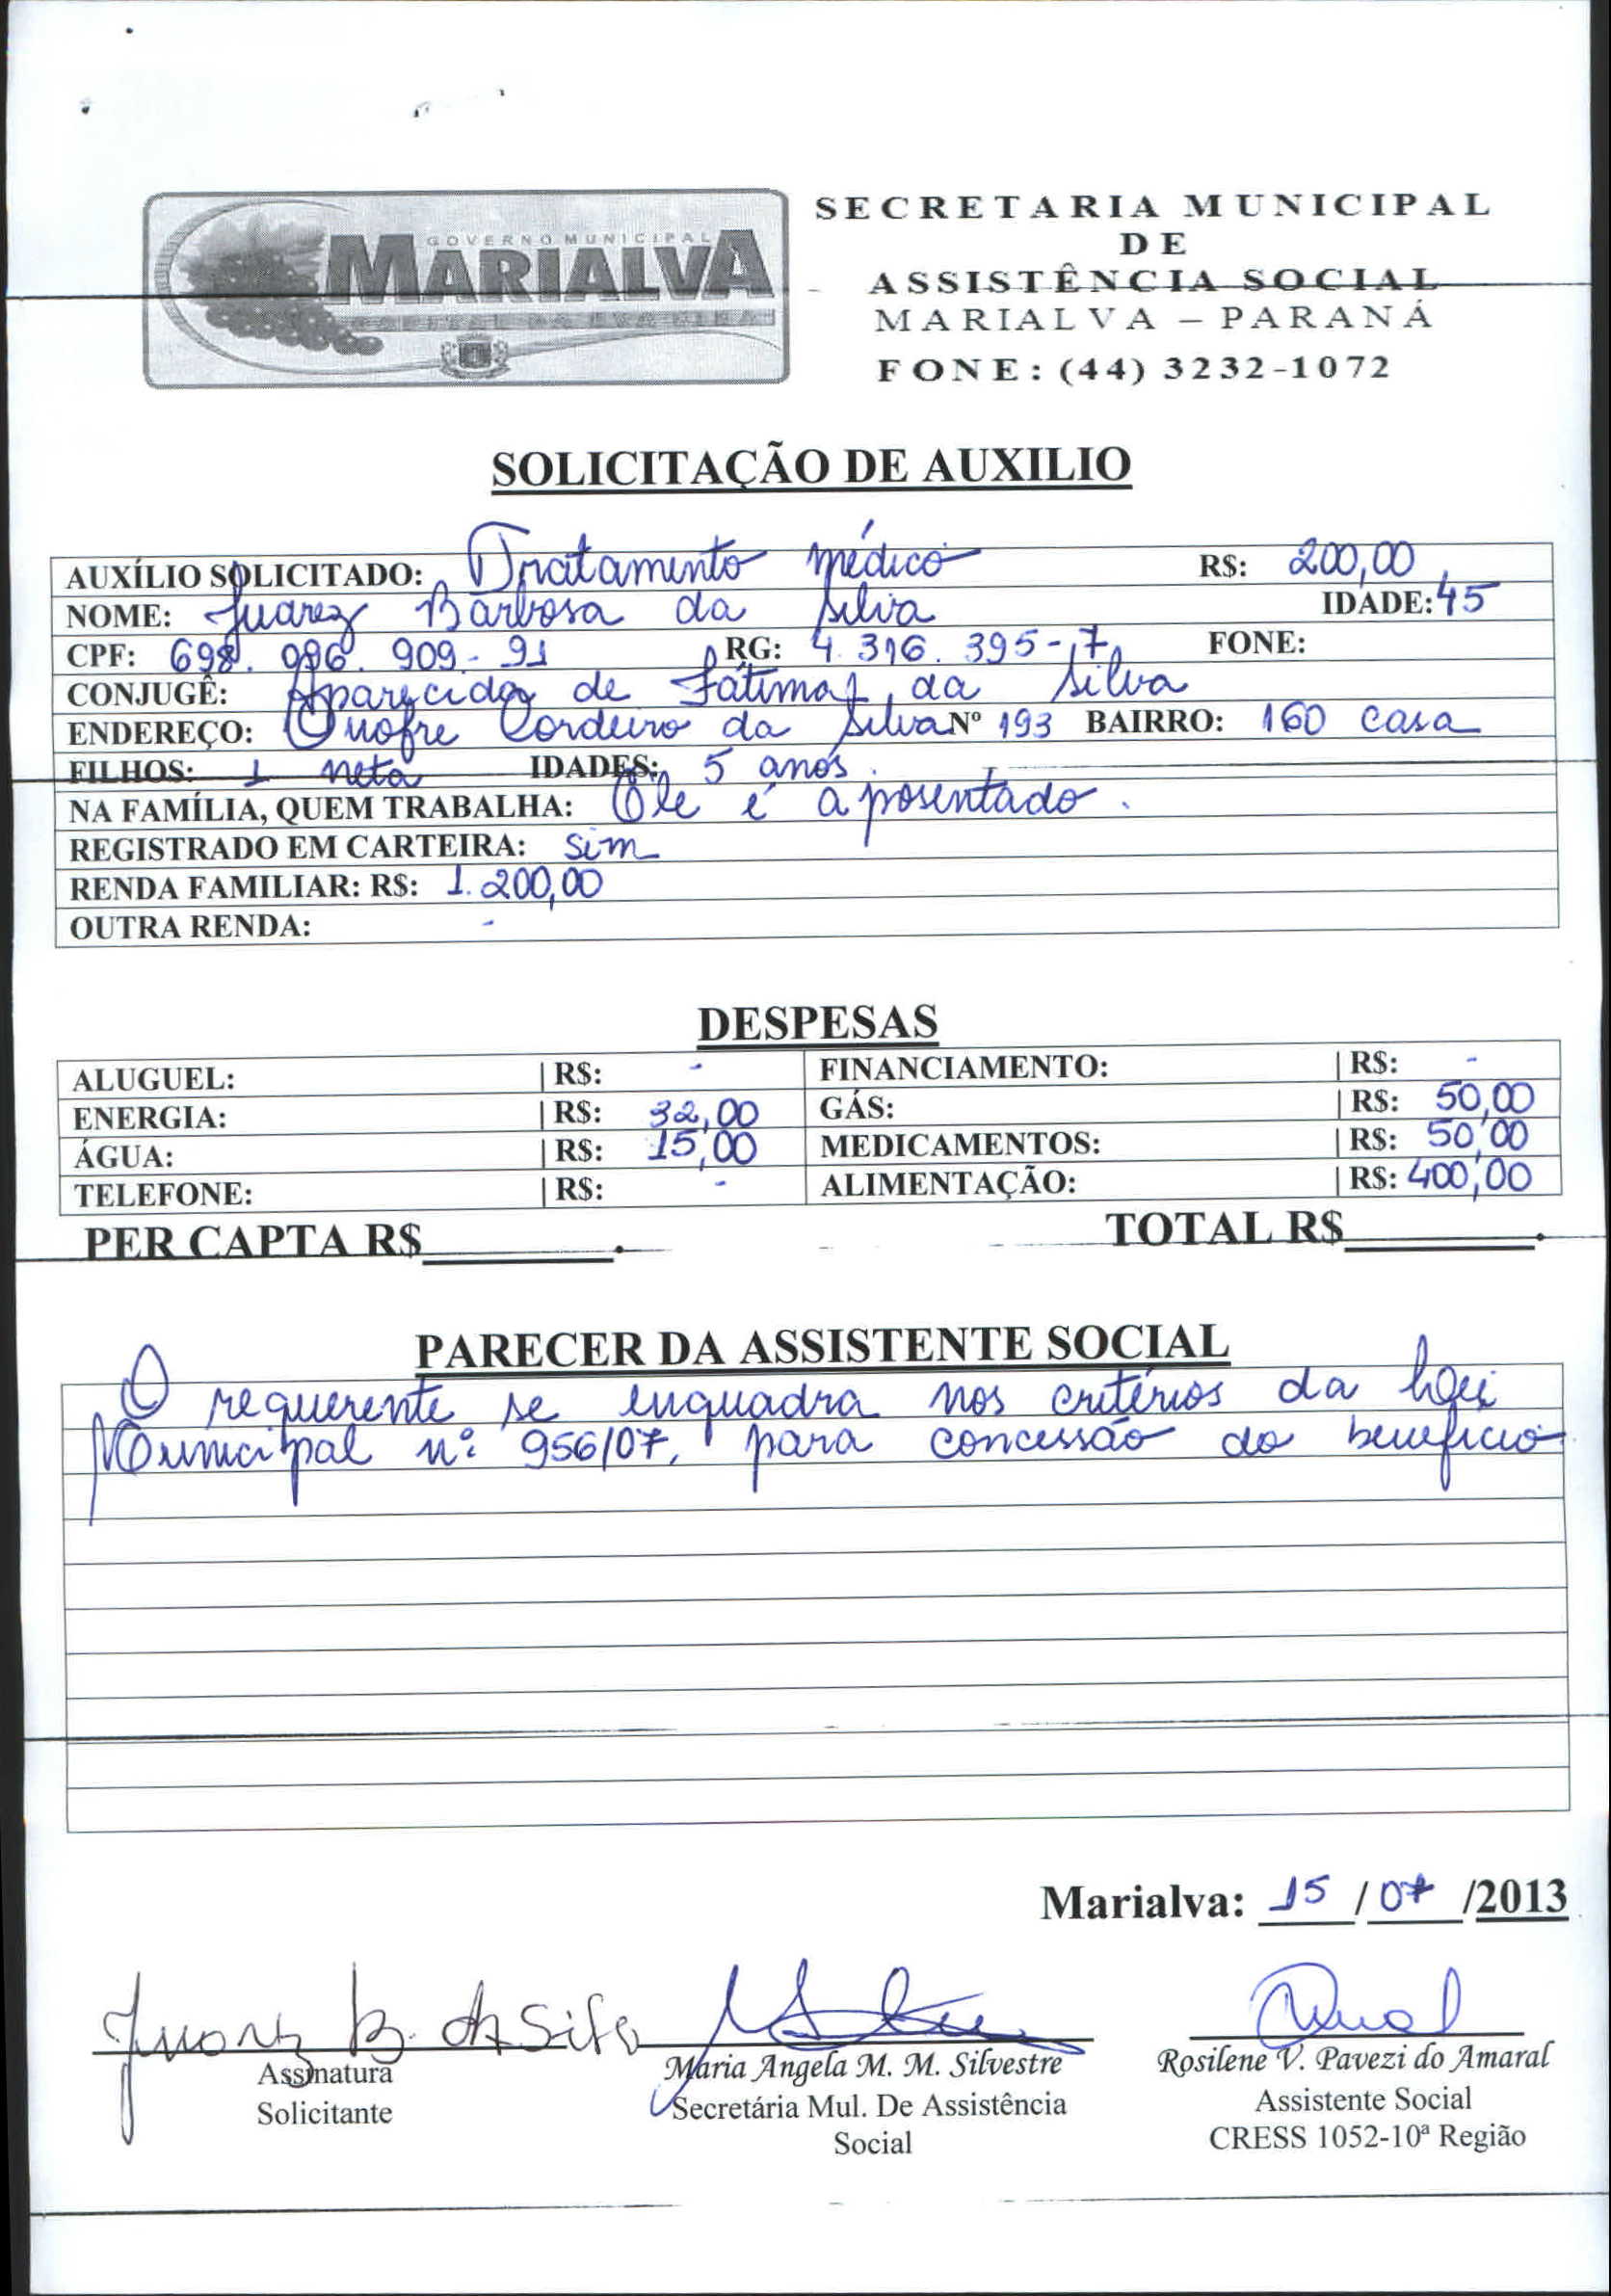 GOVERNO MUNICIPAL
MARIALVA
SECRETARIA MUNICIPAL
DE
ASSISTÊNCIA SOCIAL
MARIALVA – PARANÁ
FONE: (44) 3232-1072
SOLICITAÇÃO DE AUXILIO
AUXÍLIO SOLICITADO: Tratamento médico R$: 200,00
NOME: Juarez Barbosa da Silva IDADE: 45
CPF: 698.096.909-91 RG: 4.316.395-7 FONE:
CONJUGÊ: Aparecida de Fátima da Silva
ENDEREÇO: Onofre Cordeiro da Silva Nº 193 BAIRRO: 160 casa
FILHOS: 1 neta IDADES: 5 anos.
NA FAMÍLIA, QUEM TRABALHA: Ele é aposentado.
REGISTRADO EM CARTEIRA: sim
RENDA FAMILIAR: R$: 1.200,00
OUTRA RENDA: -
DESPESAS
ALUGUEL: | R$: - FINANCIAMENTO: | R$: -
ENERGIA: | R$: 32,00 GÁS: | R$: 50,00
ÁGUA: | R$: 15,00 MEDICAMENTOS: | R$: 50,00
TELEFONE: | R$: - ALIMENTAÇÃO: | R$: 400,00
PER CAPTA R$________. TOTAL R$________.
PARECER DA ASSISTENTE SOCIAL
O requerente se enquadra nos critérios da Lei
Municipal nº 956/07, para concessão do benefício
Marialva: 15/07/2013
Juarez B. da Silva
Assinatura
Solicitante
Maria Angela M. M. Silvestre
Secretária Mul. De Assistência
Social
Rosilene V. Pavezi do Amaral
Assistente Social
CRESS 1052-10ª Região